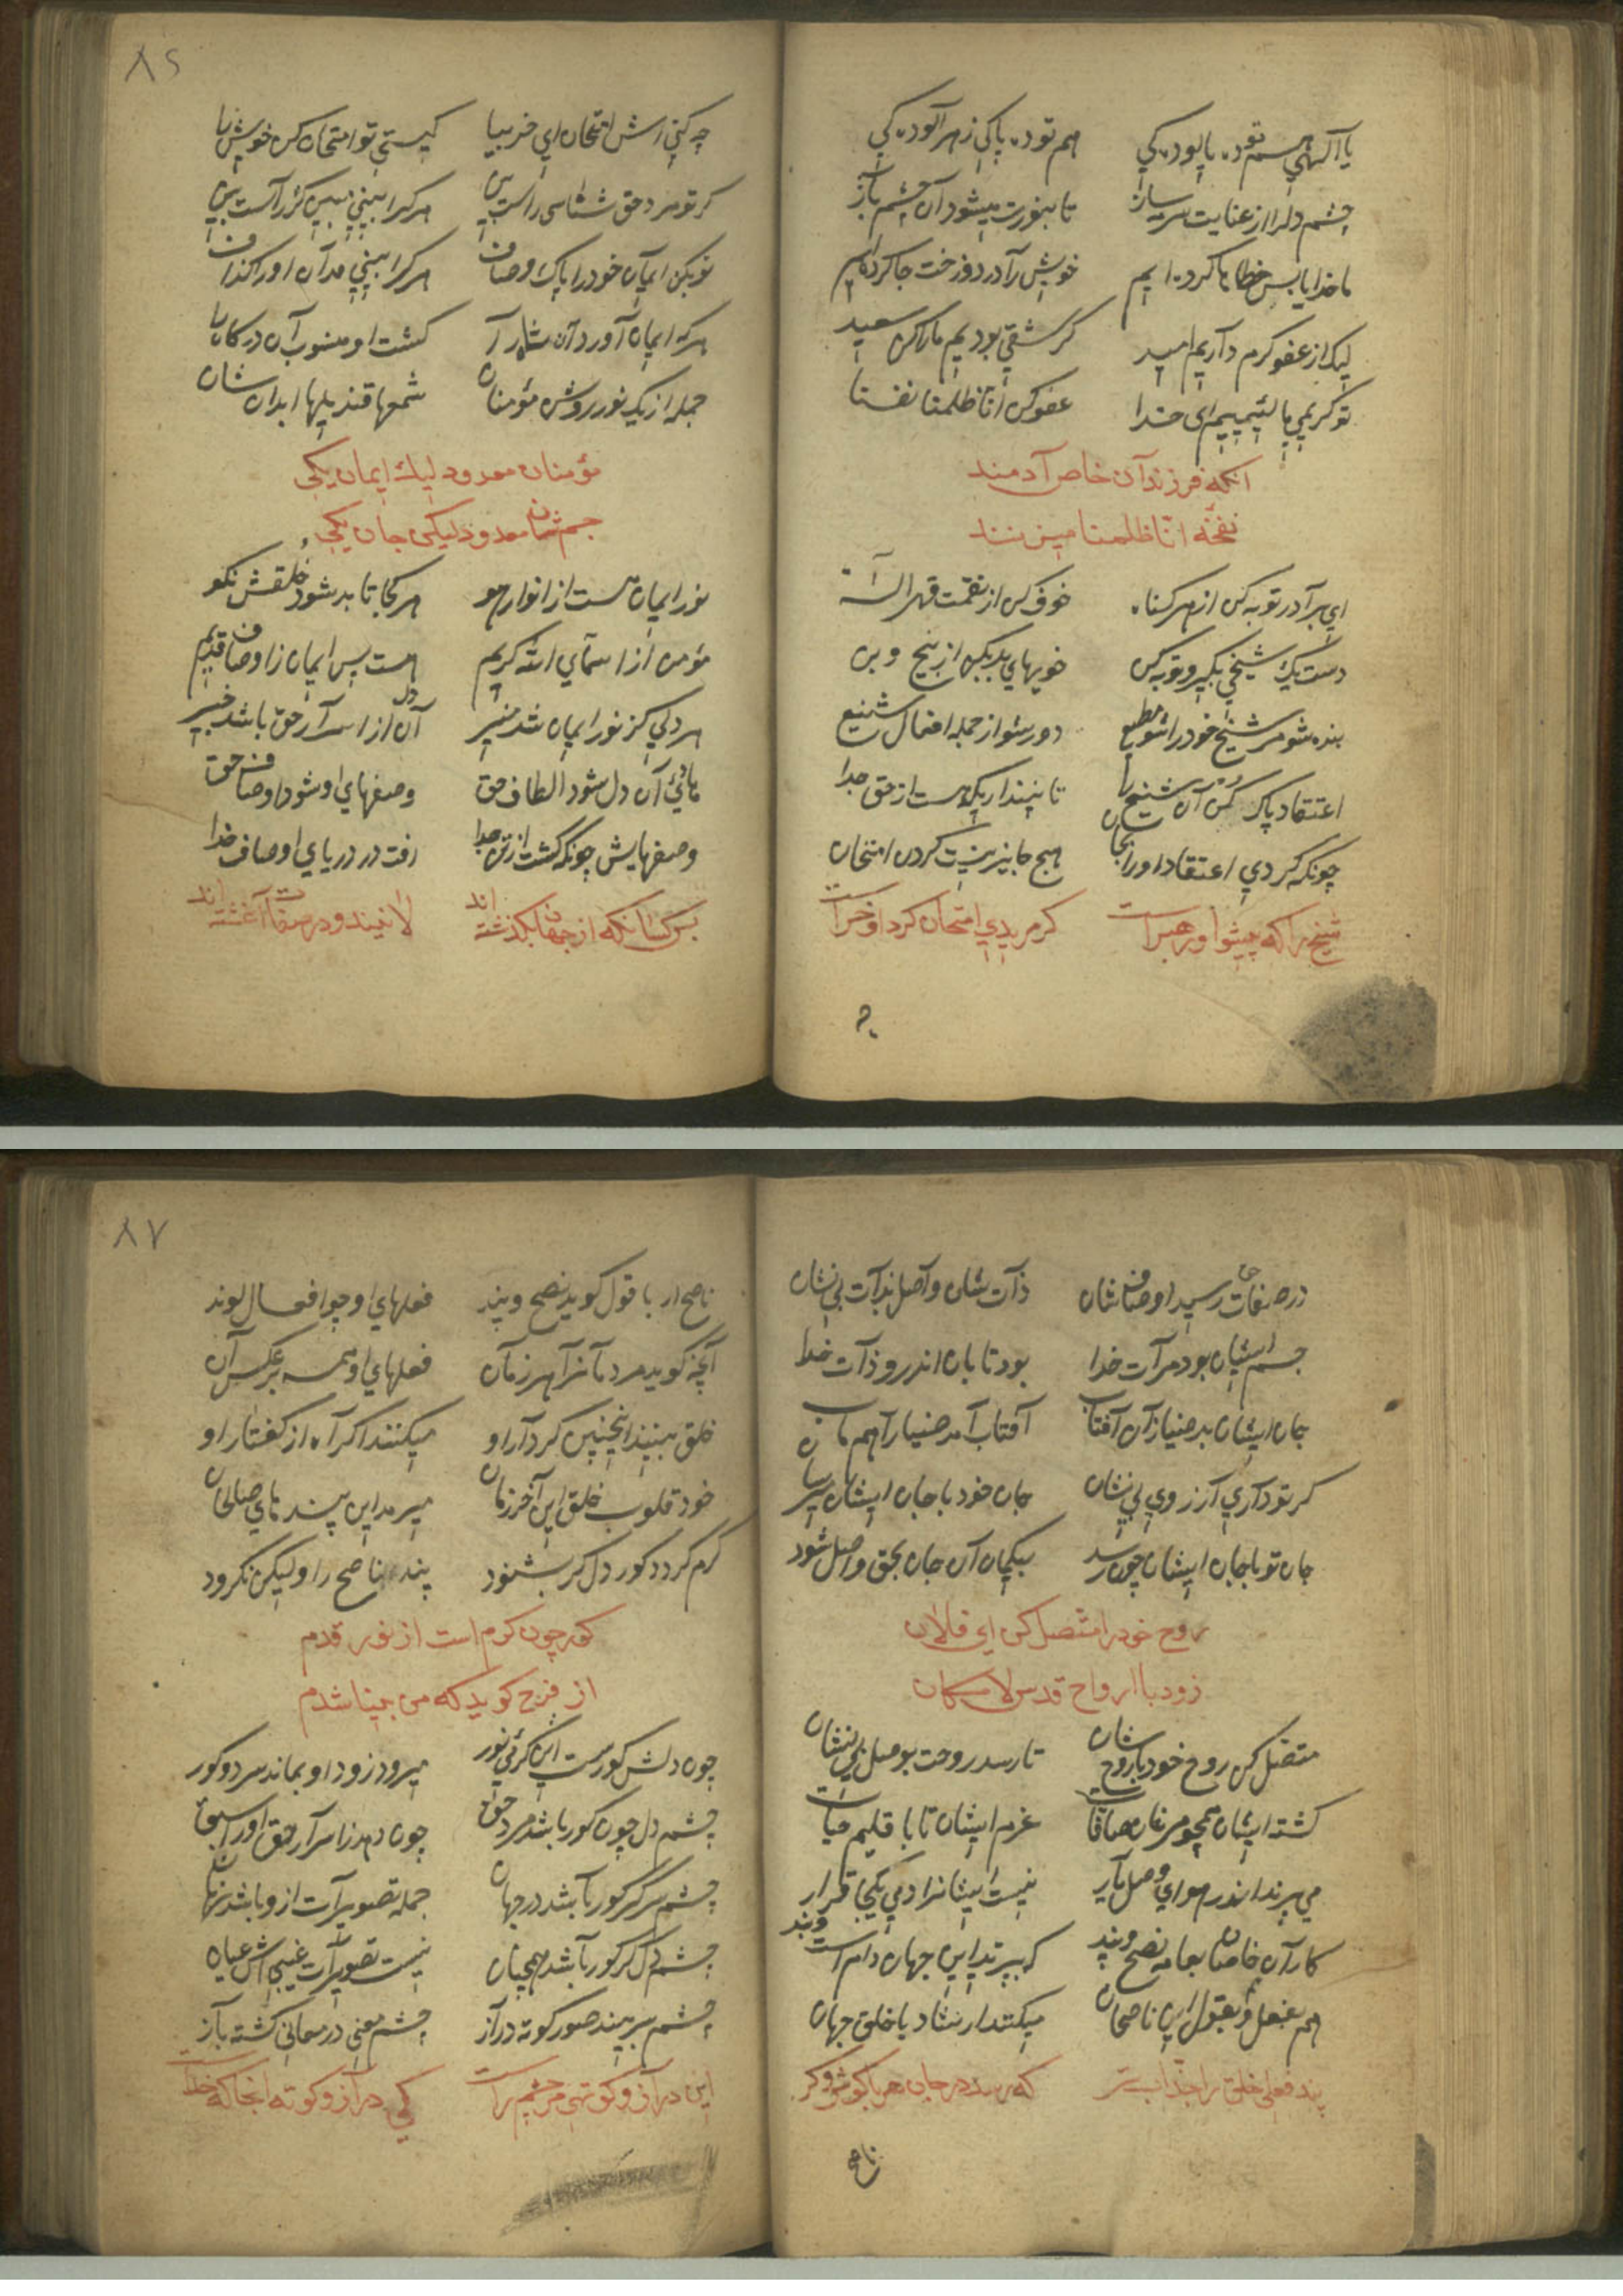 یا الهی هم تو ده پالوده کی هم تو ده پاکی ز هر آلوده کی
چشم دلرا از عنایت سرمه ساز تا بنورت میشود آن چشم باز
ما خدایا بس خطاها کرده ایم خویش را در دوزخت جا کرده ایم
لیک از عفو کرم داریم امید گر شقی بودیم ما را کن سعید
تو کریمی ما لئیمیم ای خدا عفو کن انا ظلمنا نفسنا
آنکه فرزندان خاص آدمند
نفحه انا ظلمنا میزنند
ای برادر توبه کن از هر کناه خوف کن از نقمت قهر اله
دست یک شیخی بگیر و توبه کن خویهای بد بکن از بیخ و بن
بنده شو مر شیخ خود را شو مطیع دور شو از جمله افعال شنیع
اعتقاد پاک کن آن شیخ را تا نپنداریکه هست از حق جدا
چونکه کردی اعتقاد او را بجان هیچ جایز نیست کردن امتحان
شیخ را که پیشوا و رهبرست گر مریدی امتحان کرد او خرست
٨٦
چه کنی زش امتحان ای خر بیا کیستی تو امتحان کن خویش را
گر تو مرد حق شناسی راست بین هر کرا بینی مبین کژ راست بین
تو بکن ایمان خود را پاک و صاف هر کرا بینی مدان او را کذاف
هر که ایمان آورد آن شاه را گشت او منسوب آن درگاه را
جمله از یک نور روشن مؤمنان شمعها قندیلها ابدانشان
مؤمنان معدود لیک ایمان یکی
جسمشان معدود لیکن جان یکی
نور ایمان هست از انوار هو هر کجا تابد شود خلقش نکو
مؤمن از اسمای الله کریم هست پس ایمان ز اوصاف قدیم
هر دلی کز نور ایمان شد منیر آن دل از اسرار حق باشد خبیر
هادئ آن دل شود الطاف حق وصفهای او شود اوصاف حق
وصفهایش چونکه گشت از تن جدا رفت در دریای اوصاف خدا
بس کسانکه از جهان بگذشته اند لا نیند و در صفات آغشته اند
در صفات حق رسید اوصافشان ذات شان واصل بذات بی نشان
جسم ایشان بود مرآت خدا بود تابان اندر و ذات خدا
جان ایشان بد ضیا زان آفتاب آفتاب آمد ضیا را هم مآب
گر تو داری آرزوی بی نشان جان خود با جان ایشان سپار
جان تو با جان ایشان چون رسد بیکمان آن جان بحق واصل شود
روح خود را متصل کن ای فلان
زود با ارواح قدس لامکان
متصل کن روح خود با روح شان تا رسد روحت بوصل بی نشان
گشته ایشان همچو مرغان صافات عزم ایشان تا باقلیم حیات
می پرند اندر هوای وصل یار نیست ایشانرا دمی یکجا قرار
کار آن خاصان بعامه نصح و پند که بپرند این جهان دام است و بند
هم بفعل و بقول این ناصحان میکنند ارشاد با خلق جهان
پند فعلی خلق را جذاب تر که رسد در جان هر با گوش و کر
ناصح
٨٧
ناصح ار با قول گوید نصح و پند فعلهای او چو افعال لوند
آنچه گوید مردمانرا هر زمان فعلهای او همه بر عکس آن
خلق بینند اینچنین کردار او میکنند اکراه از گفتار او
خود قلوب خلق این آخر زمان میرمد این پندهای صالحان
گرم گردد کور دل گر بشنود پند ناصح را ولیکن نگرود
کور چون گرم است از نور قدم
از فرح گوید که من بینا شدم
چون دلش کورست این گرمی نور میرود زود او بماند سرد و کور
چشم دل چون کور باشد مرد حق چون دهد ز اسرار حق او را سبق
چشم سر گر کور باشد در جهان جمله تصویرات ازو باشد نهان
چشم دل گر کور باشد همچنان نیست تصویرات غیبی اش عیان
چشم سر بیند صور کوته دراز چشم معنی در معانی گشته باز
این دراز و کوتهی مر چشم راست کی دراز و کوته انجا که خداست